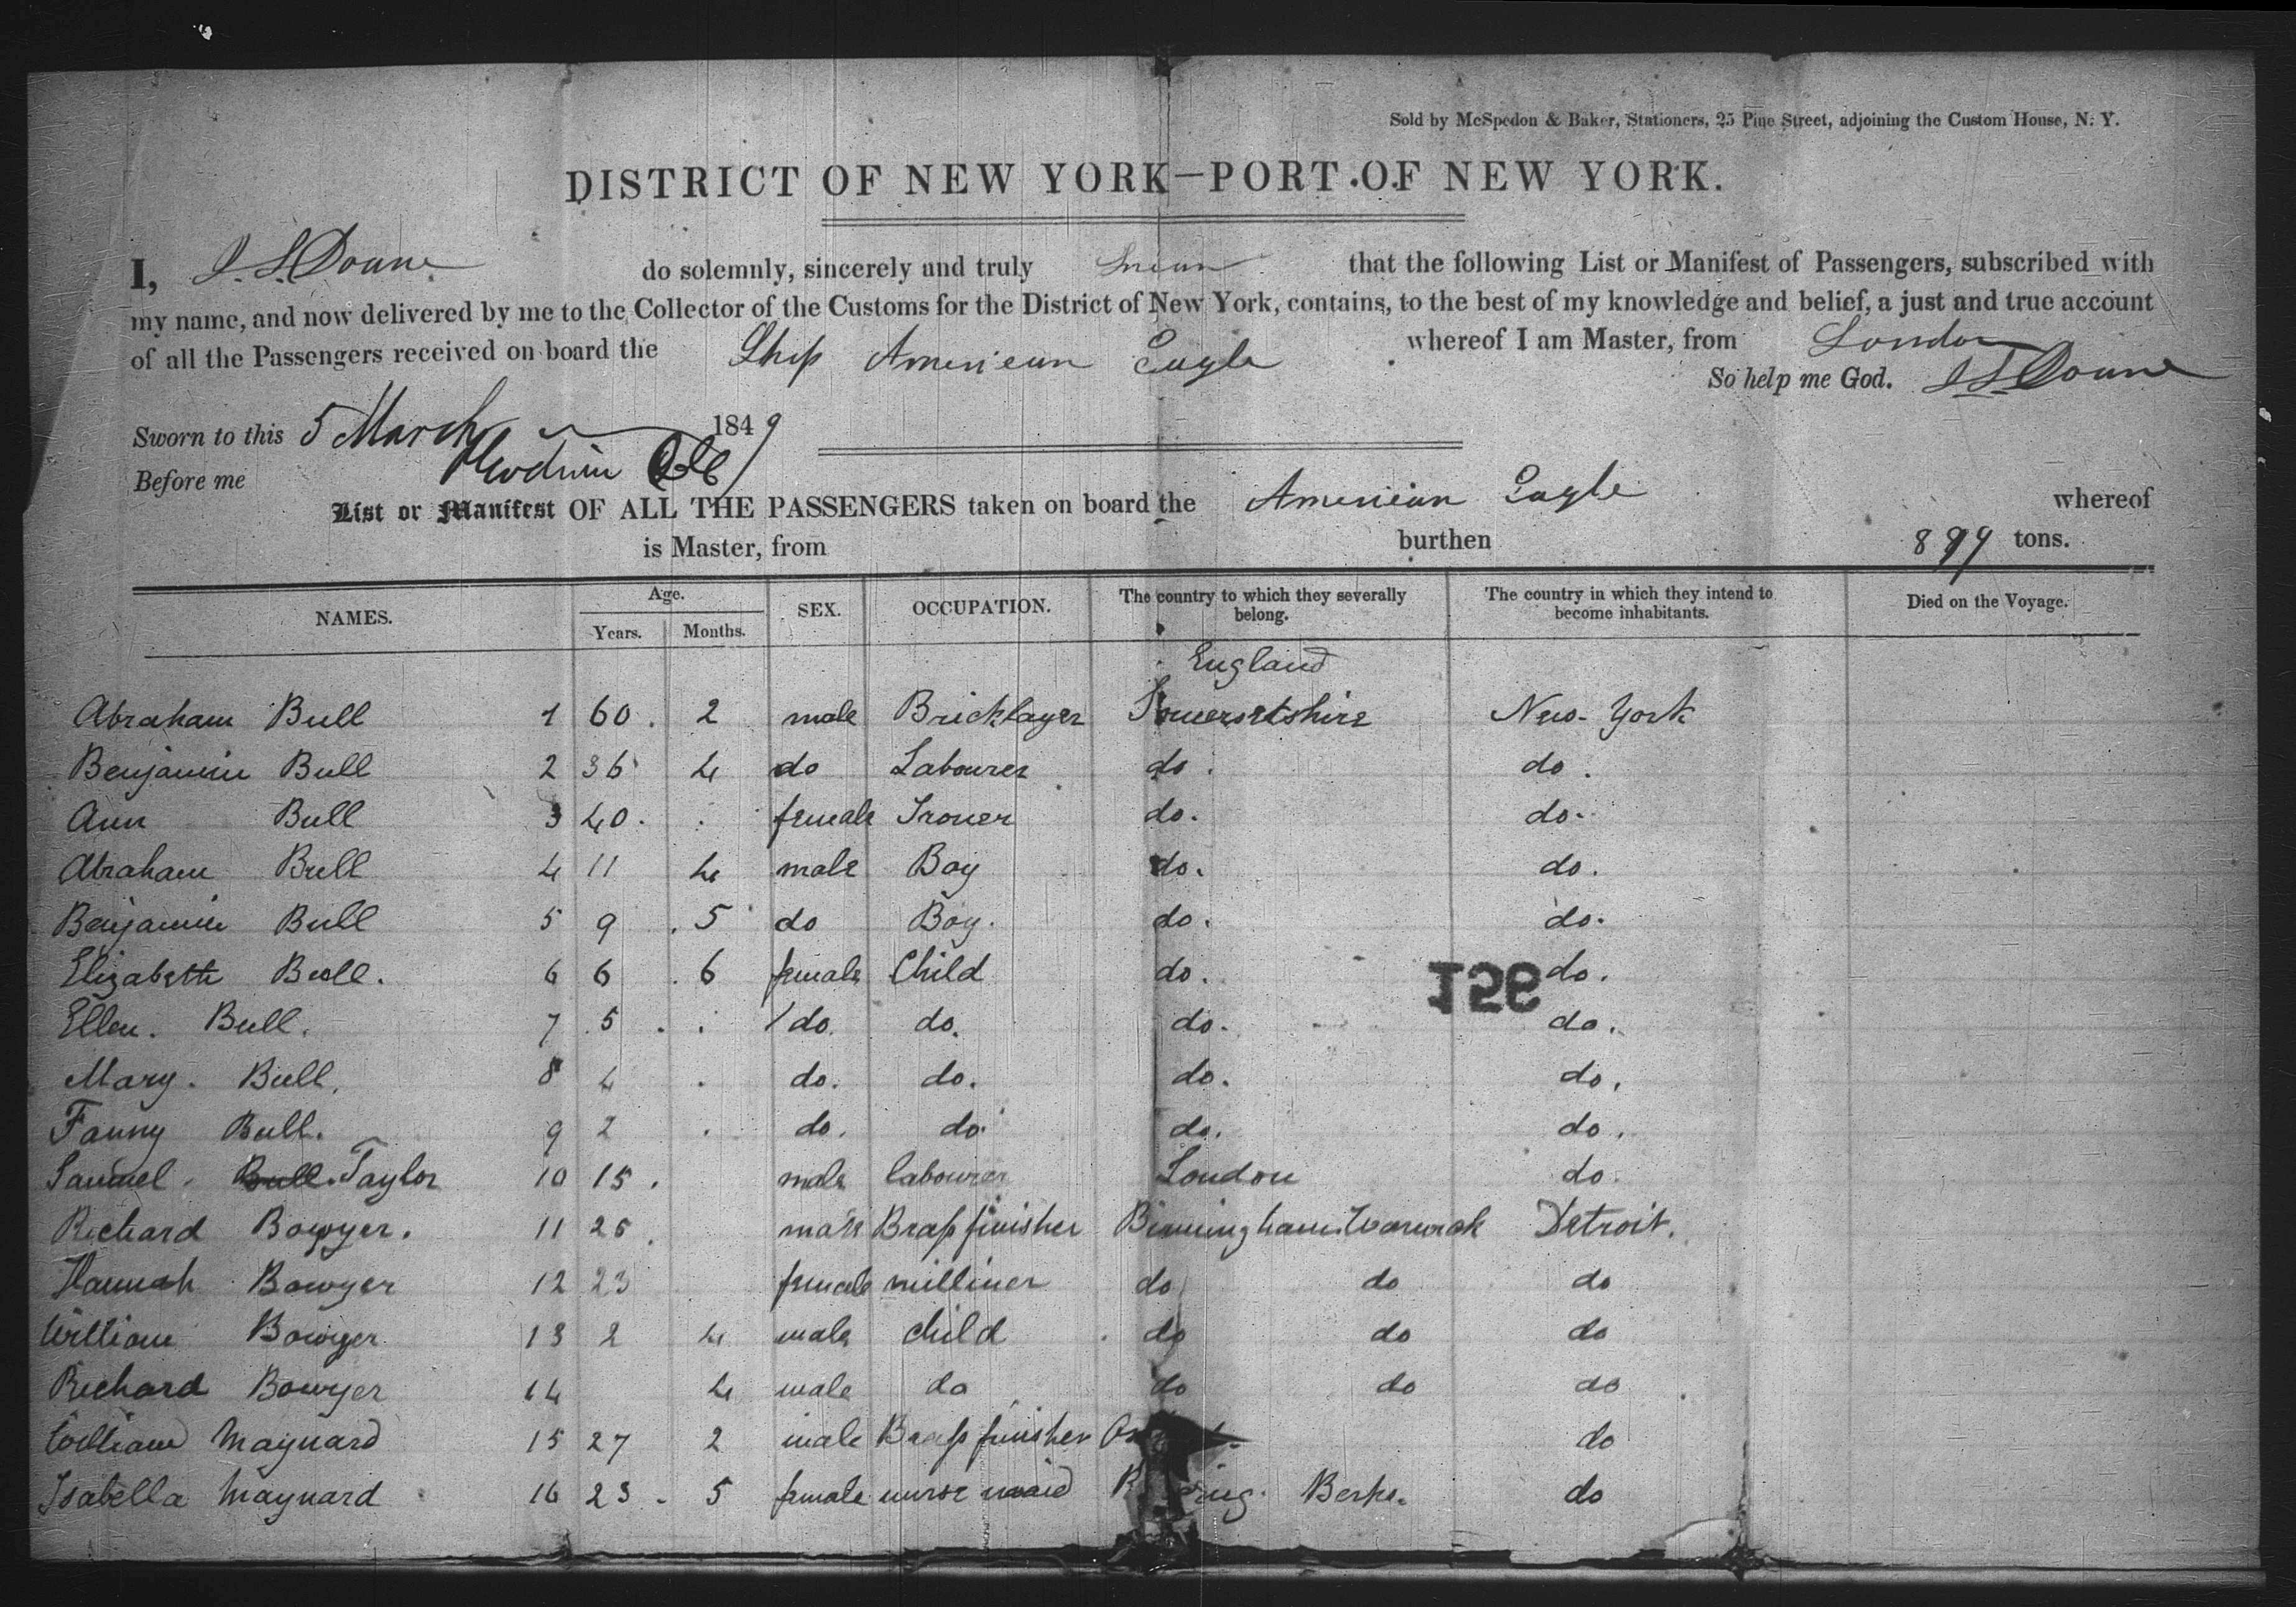 Sold by McSpedon & Baker, Stationers, 25 Pine Street, adjoining the Custom House, N. Y.
DISTRICT OF NEW YORK—PORT OF NEW YORK.
I, J. S. Doane do solemnly, sincerely and truly swear that the following List or Manifest of Passengers, subscribed with
my name, and now delivered by me to the Collector of the Customs for the District of New York, contains, to the best of my knowledge and belief, a just and true account
of all the Passengers received on board the Ship American Eagle whereof I am Master, from London
So help me God. J S Doane
Sworn to this 5 March 1849
Before me
List or Manifest OF ALL THE PASSENGERS taken on board the American Eagle whereof
is Master, from burthen 899 tons.
NAMES. Age. Years. Months. SEX. OCCUPATION. The country to which they severally belong. The country in which they intend to become inhabitants. Died on the Voyage.
England
Abraham Bull 1 60. 2 male Bricklayer Somersetshire New-York
Benjamin Bull 2 36 4 do Labourer do. do.
Ann Bull 3 40. . female Ironer do. do.
Abraham Bull 4 11 4 male Boy do. do.
Benjamin Bull 5 9 .5 do Boy. do. do.
Elizabeth Bull. 6 6 .6 female Child do. do.
156
Ellen. Bull. 7 5 . . do. do. do. do.
Mary. Bull. 8 4 . do. do. do. do.
Fanny Bull. 9 2 . do. do. do. do.
Samuel. Bull. Taylor 10 15. male labourer London do.
Richard Bowyer. 11 25. male Brass finisher Birmingham. Warwick Detroit.
Hannah Bowyer 12 23 female milliner do do do
William Bowyer 13 2 4 male child do do do
Richard Bowyer 14 4 male do do do do
William Maynard 15 27 2 male Brass finisher do
Isabella Maynard 16 23. 5 female nurse maid Berks. do